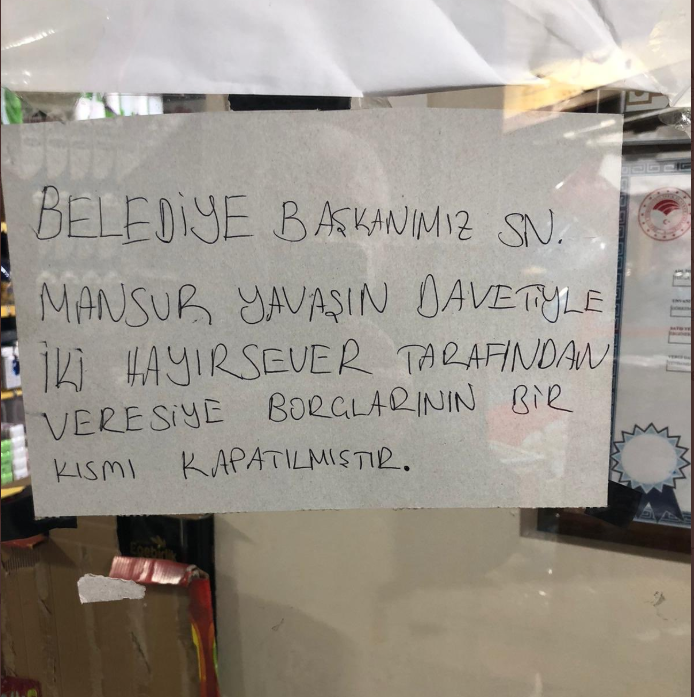 BELEDİYE BAŞKANIMIZ SN.
MANSUR YAVAŞIN DAVETİYLE
İKİ HAYIRSEVER TARAFINDAN
VERESİYE BORÇLARININ BİR
KISMI KAPATILMIŞTIR.